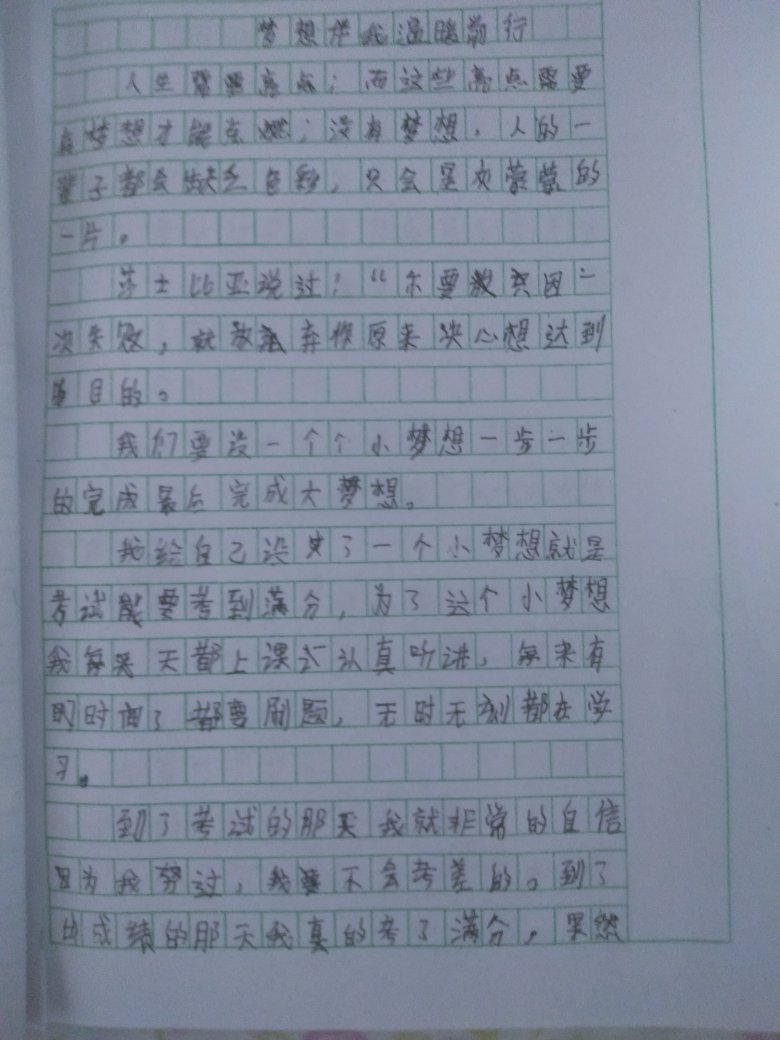 梦想伴我温暖前行
人生需要亮点；而这些亮点需要
有梦想才能点燃；没有梦想，人的一
辈子都会缺乏色彩，只会是灰蒙蒙的
一片。
莎士比亚说过：“不要只因一
次失败，就放弃你原来决心想达到
目的。
我们要设一个个小梦想一步一步
的完成最后完成大梦想。
我给自己设了一个小梦想就是
考试要考到满分，为了这个小梦想
我每天都上课认真听讲，每来有
时间了都要刷题，无时无刻都在学
习。
到了考试的那天我就非常的自信
因为我努过，我不会考差的。到了
出成绩的那天我真的考了满分，果然